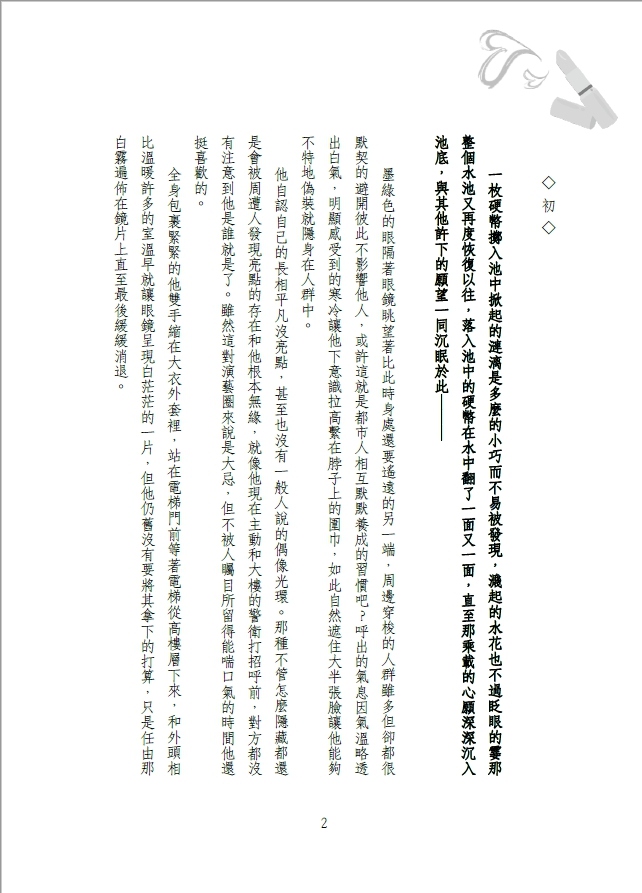 ◇初◇
一枚硬幣擲入池中掀起的漣漪是多麼的小巧而不易被發現，濺起的水花也不過眨眼的霎那
整個水池又再度恢復以往，落入池中的硬幣在水中翻了一面又一面，直至那乘載的心願深深沉入
池底，與其他許下的願望一同沉眠於此——
墨綠色的眼隔著眼鏡眺望著比此時身處還要遙遠的另一端，周邊穿梭的人群雖多但卻都很
默契的避開彼此不影響他人，或許這就是都市人相互默默養成的習慣吧？呼出的氣息因氣溫略透
出白氣，明顯感受到的寒冷讓他下意識拉高繫在脖子上的圍巾，如此自然遮住大半張臉讓他能夠
不特地偽裝就隱身在人群中。
他自認自己的長相平凡沒亮點，甚至也沒有一般人說的偶像光環。那種不管怎麼隱藏都還
是會被周遭人發現亮點的存在和他根本無緣，就像他現在主動和大樓的警衛打招呼前，對方都沒
有注意到他是誰就是了。雖然這對演藝圈來說是大忌，但不被人矚目所留得能喘口氣的時間他還
挺喜歡的。
全身包裹緊緊的他雙手縮在大衣外套裡，站在電梯門前等著電梯從高樓層下來，和外頭相
比溫暖許多的室溫早就讓眼鏡呈現白茫茫的一片，但他仍舊沒有要將其拿下的打算，只是任由那
白霧遍佈在鏡片上直至最後緩緩消退。
2